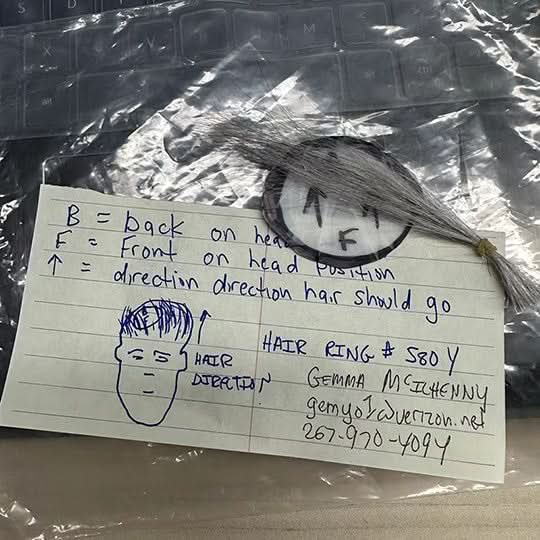 B = back on head
F = Front on head position
↑ = direction direction hair should go
↑ ↑
F
HAIR
DIRECTION
HAIR RING # 580Y
GEMMA McILHENNY
gemyo1@verizon.net
267-970-4094